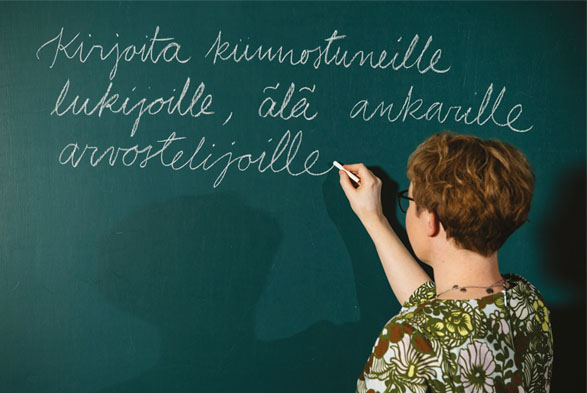 Kirjoita kiinnostuneille
lukijoille, älä ankarille
arvostelijoille